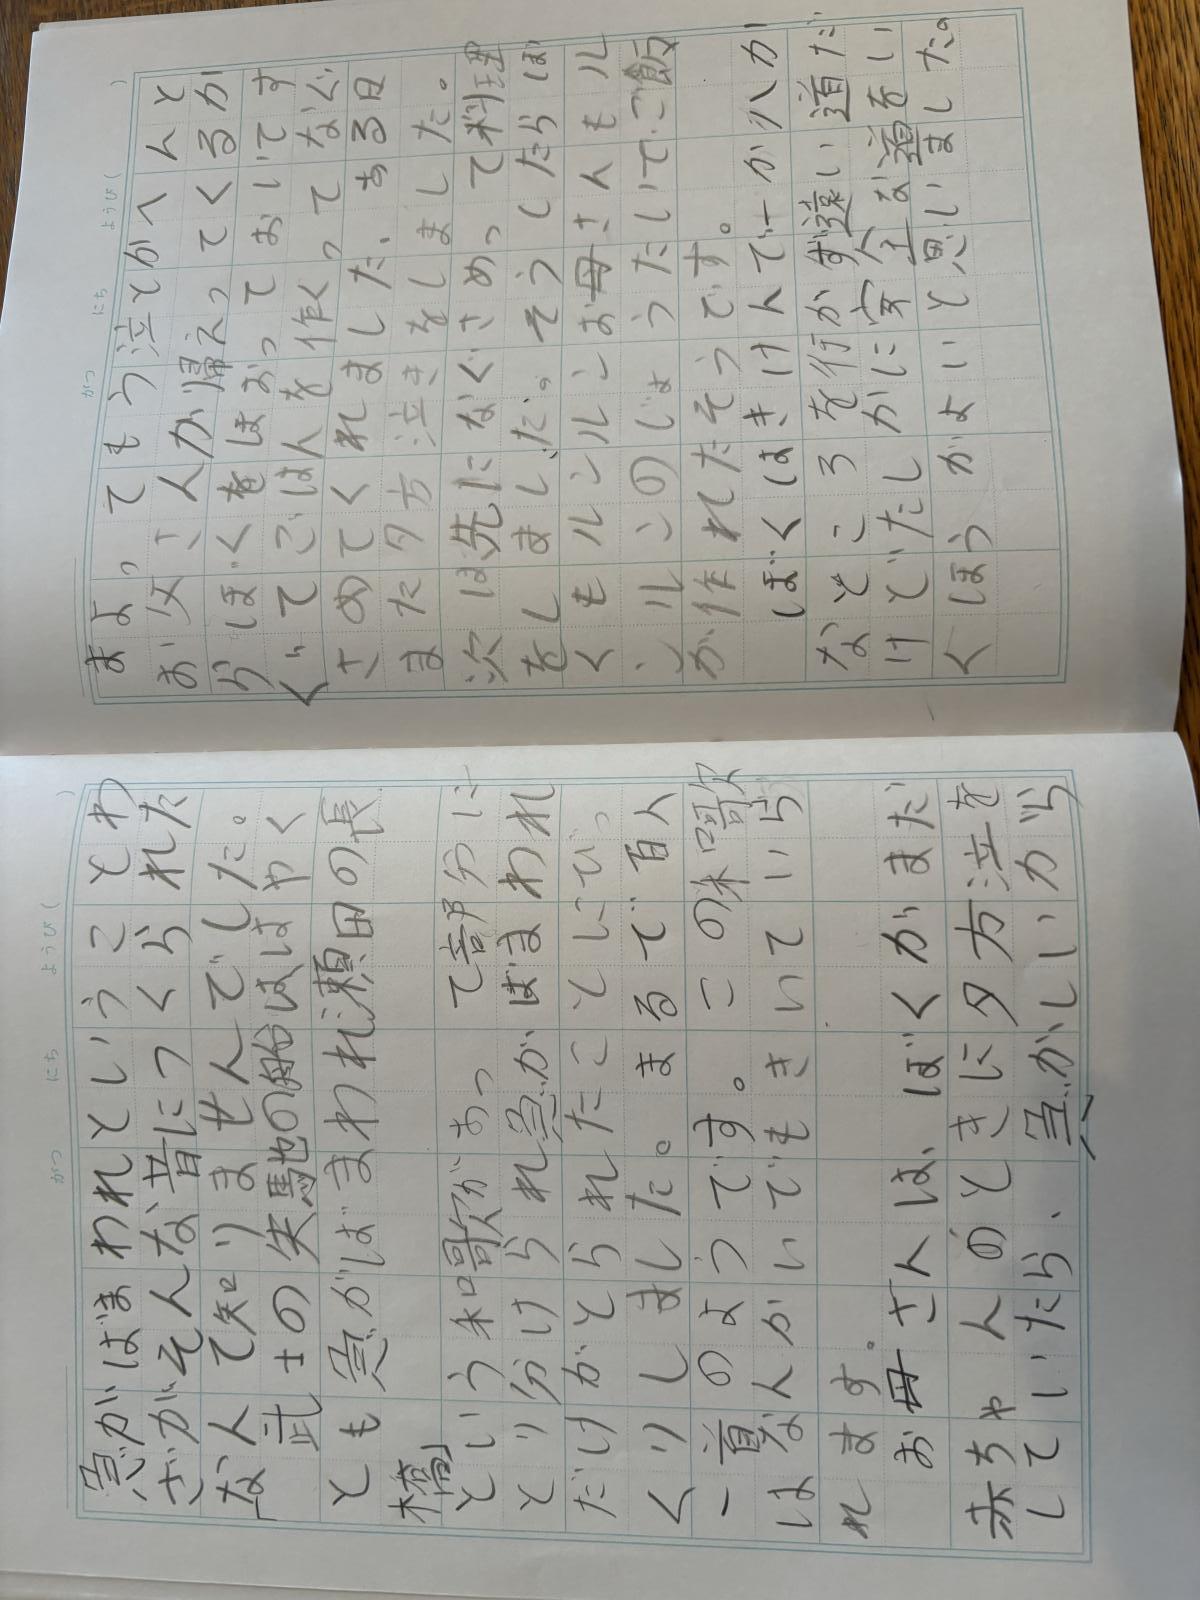 急がばまわれということわ
ざがそんな昔につくられた
なんて知りませんでした。
「武士の矢馳の船ははやく
とも急がばまわれ瀬田の長
橋」
という和歌があって部分に
とり分けられ急がばまわれ
だけがとられたことにびっ
くりしました。まるで百人
一首のようです。この和歌
はなんかいでもきいていら
れます。
お母さんは、ぼくがまだ
赤ちゃんのときに夕方泣を
していたら、急がしいから
まよってもう泣とかへんと
お父さんが帰えってくるか
らぼくをほおっておいてす
ぐてごはんを作くってなぐ
さめてくれました、ある日
また夕方泣きをしました。
次は先になぐさめって料理
をしました。そうしたらぼ
くもルンルンお母さんもル
ンルンのじょうたいでご飯
が作れたそうです。
ぼくはきけんで一か八か
なところを行かず遠い道だ
けどたしかに安全な道をい
くほうがよいと思いました。
がつ にち ようび( )
がつ にち ようび( )